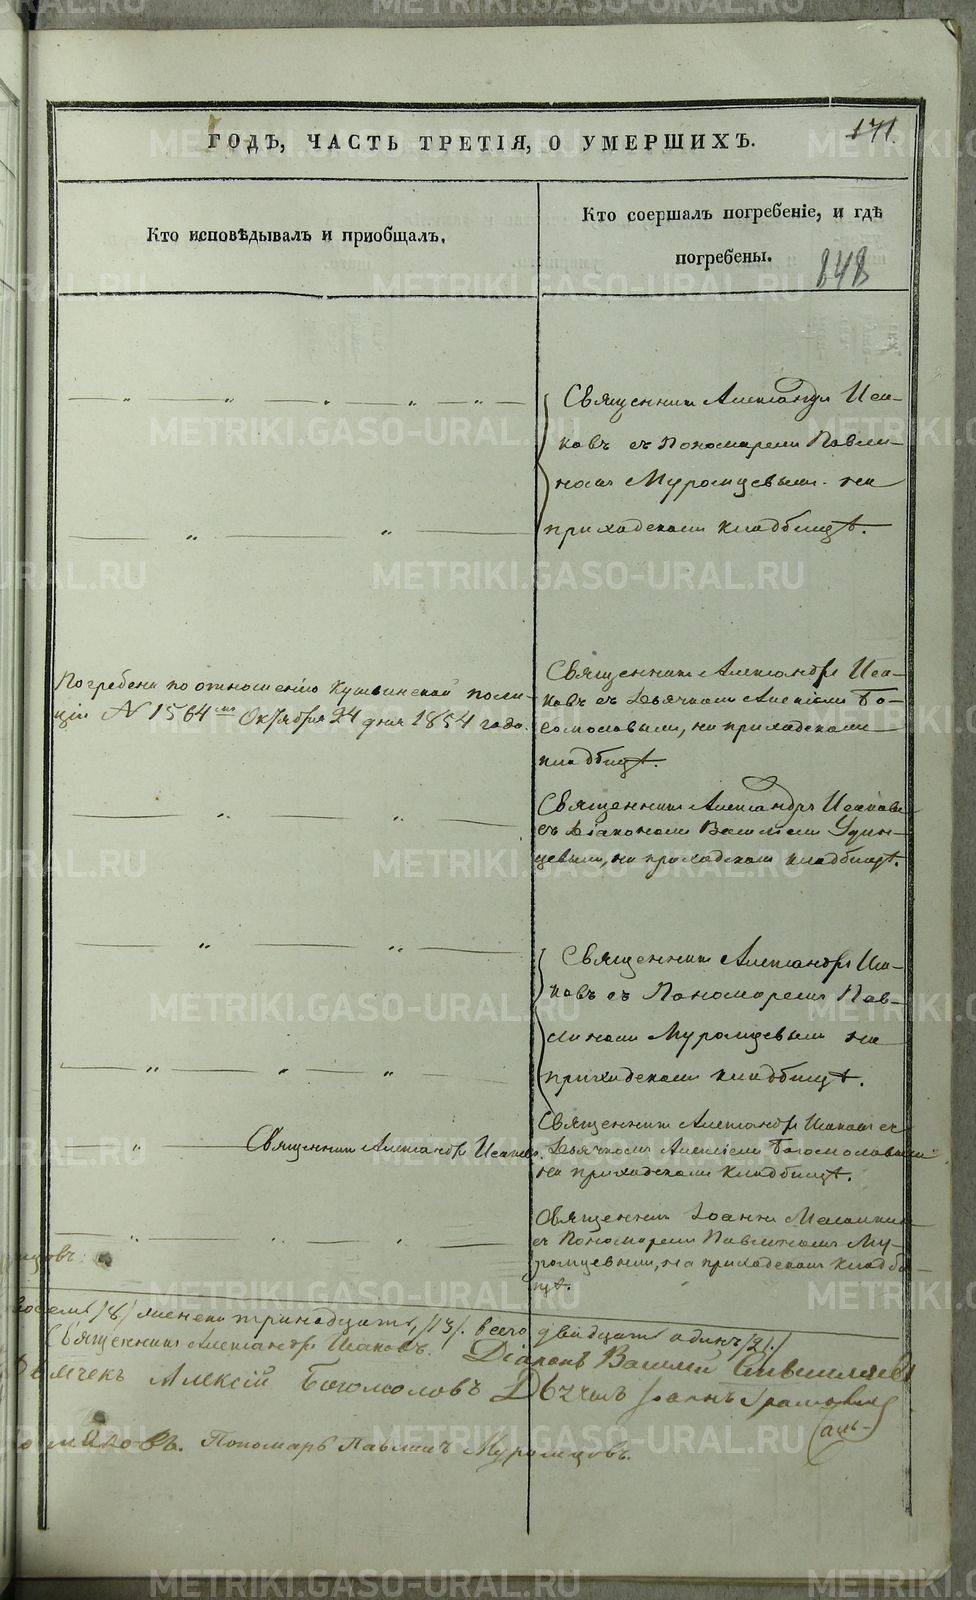 171.
ГОДЪ, ЧАСТЬ ТРЕТІЯ, О УМЕРШИХЪ.
Кто исповѣдывалъ и пріобщалъ.
Кто соершалъ погребеніе, и гдѣ
погребены.
848
Священникъ Александръ Иса-
ковъ съ Пономаремъ Павли-
номъ Муромцевымъ на
приходскомъ кладбищѣ.
Погребены по отношенію Кушвинской поли-
ціи № 1564 Октября 24 дня 1854 года.
Священникъ Александръ Иса-
ковъ съ Дьячкомъ Алексіемъ Бо-
гомоловымъ, на приходскомъ
кладбищѣ.
Священникъ Александръ Исаковъ
съ Діакономъ Василіемъ Удин-
цевымъ, на приходскомъ кладбищѣ.
Священникъ Александръ Иса-
ковъ съ Пономаремъ Пав-
линомъ Муромцевымъ на
приходскомъ кладбищѣ.
Священникъ Александръ Исаковъ.
Священникъ Александръ Исаковъ съ
Дьячкомъ Алексіемъ Богомоловымъ
на приходскомъ кладбищѣ.
Священникъ Іоаннъ
съ Пономаремъ Павлиномъ Му-
ромцевымъ, на приходскомъ кладби-
щѣ.
восемь /8/ женска тринадцать /13/. всего двадцать одинъ /21/
Священникъ Александръ Исаковъ. Діаконъ Василій
Дьячекъ Алексій Богомоловъ Іоаннъ
Пономарь Павлинъ Муромцовъ.
METRIKI.GASO-URAL.RU